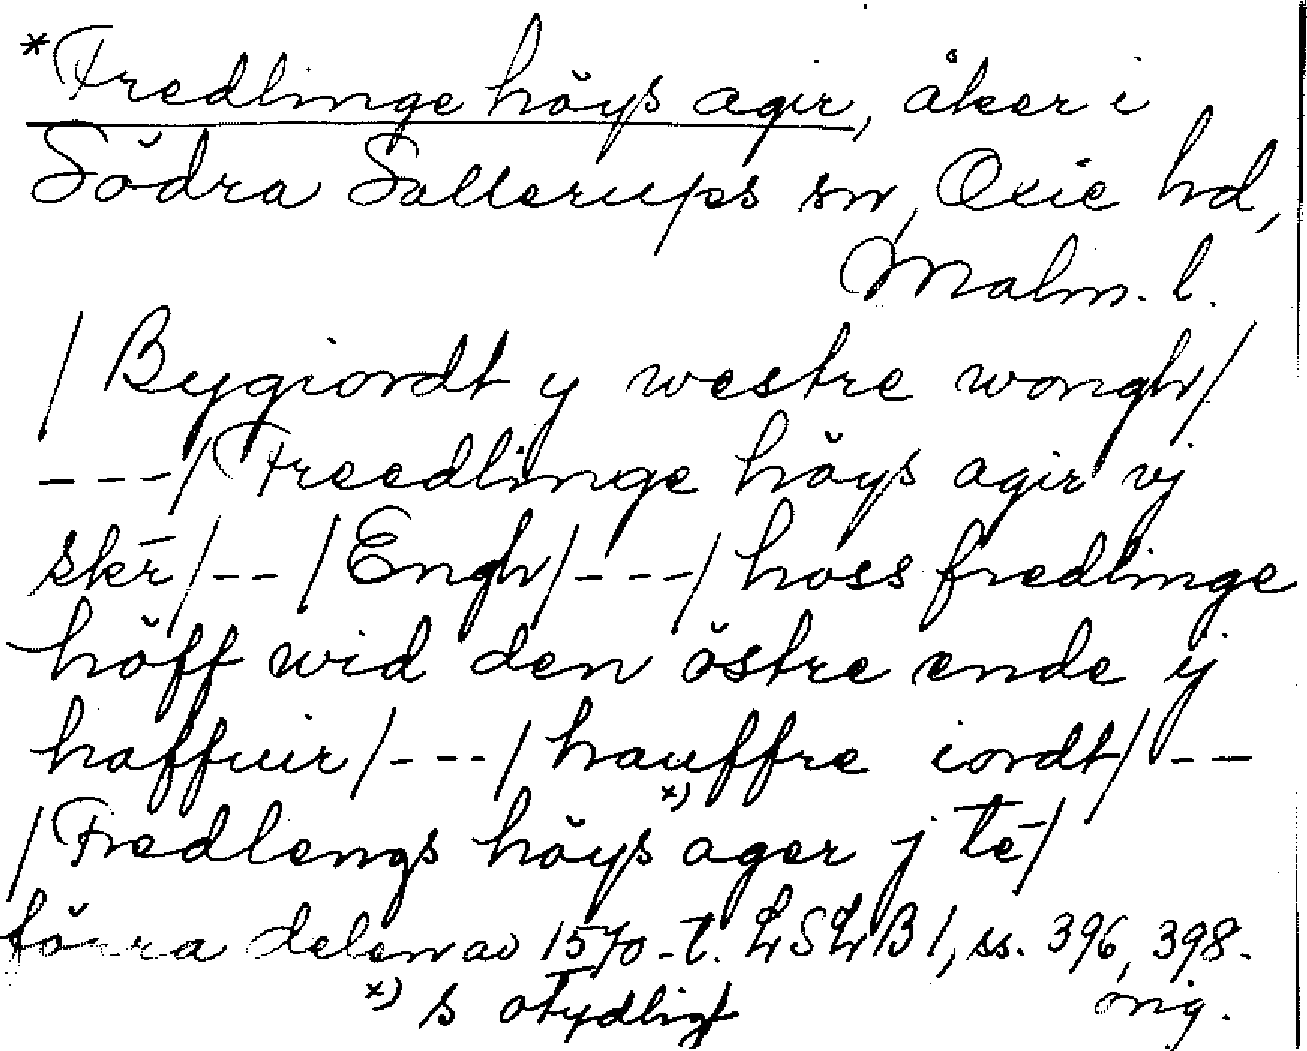 *Fredlinge höys agir, åker i
Södra Sallerups sn, Oxie hd,
Malm. l.
/ Bygiordt y westre wongh/
---/ Freedlinge höys agir vj
skr̄/--/Engh/---/ hoss fredlinge
höff wid den östre ende ij
haffuir/---/ hauffre iordt/--
/Fredlengs höys x) ager j te̅/
förra delen av 1570-t. LSLB 1, ss. 396, 398.
x) s otydligt orig.